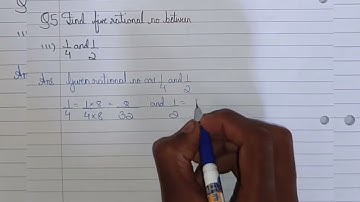 Q5. Find five rational no between
iii) 1/4 and 1/2
Ans Given rational no are 1/4 and 1/2
1/4 = 1×8/4×8 = 8/32 and 1/2 =